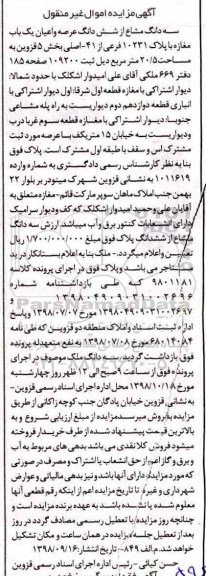 آگهی مزایده اموال غیر منقول
سه دانگ مشاع از شش دانگ عرصه واعیان یک باب
مغازه با پلاک ۱۰۲۳۱ فرعی از ۴۱-اصلی بخش ۵قزوین به
مساحت ۲۰/۵ متر مربع ذیل ثبت ۱۰۹۲۰۰ صفحه ۱۸۵
دفتر ۶۶۹ ملکی آقای علی امیدوار اشکلک با حدود شمالا:
دیوار اشتراکی با مغازه قطعه اول شرقا: اول دیوار اشتراکی با
انباری قطعه دوازدهم دوم دیواریست به راه پله مشاعی
جنوبا: دیوار اشتراکی با مغازه قطعه سوم غربا درب
ودیواریست به خیابان ۱۵ متری عرصه مورد ثبت
مشترک اس وسقف با طبقه اول مشترک است. پلاک فوق
بنا به نظر کارشناس رسمی دادگستری به شماره وارده
۱۰۱۱۶۱۹ به نشانی قزوین شهرک مینودر بلوار ۲۲
بهمن جنب املاک ماهان سوپر مارکت قائم-مغازه متعلق به
آقایان علی وحمید امیدوار اشکلک که کف ودیوار سرامیک
دارای انشعابات کنتور برق و آب میباشد ارزش سه دانگ
مشاع از ششدانگ پلاک فوق مبلغ ۱/۷۰۰/۰۰۰/۰۰۰ ریال
تعیین واعلام میگردد. ملک بنا به اعلام بستانکار در ید
مستاجر می باشد. و پلاک فوق در اجرای پرونده کلاسه
۹۸۰۱۱۸۱ کبه طی بازداشتنامه شماره
مورخ ۱۳۹۸/۰۷/۰۷ وپاسخ
اداره ثبت اسناد واملاک منطقه دو قزوین که طی نامه
مورخ ۱۳۹۸/۰۷/۰۸ به نفع متعهدله پرونده
فوق بازداشت گردیده، سه دانگ ملک موصوف در اجرای
پرونده فوق از ساعت ۹ صبح الی ۱۲ ظهر روز چهارشنبه
مورخ ۱۳۹۸/۱۰/۱۸ محل اداره اجرای اسناد رسمی قزوین-
به نشانی قزوین خیابان پادگان جنب کوچه زاکانی از طریق
مزایده بفروش میرسد مزایده از مبلغ ارزیابی شروع و به
بالاترین قیمت پیشنهاد شده از طرف خریدار فروخته
میشود فروش کلا نقدی می باشد بدهی های مربوط به آب
وبرق و گاز اعم از حق انشعاب یا اشتراک و مصرف در صورتی
که مورد مزایده دارای آنها باشد و نیز بدهی مالیاتی و عوارض
شهرداری و غیره تا تاریخ مزایده اعم از اینکه رقم قطعی آنها
معلوم شده یا نشده باشد به عهده برنده مزایده است و
چنانچه روز مزایده با تعطیل رسمی مصادف گردد در روز
بعد از تعطیل جلسه مزایده در همان ساعت و مکان تشکیل
خواهد شد. م الف ۸۴۹- تاریخ انتشار: ۱۳۹۸/۰۹/۱۶
حسن کیائی - رئیس اداره اجرای اسناد رسمی قزوین